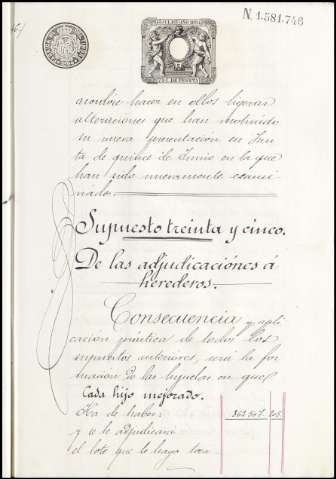 N. 1.581.746
nombre hacer en ellos ligeras
alteraciones que han motivado
su nueva presentación en Jun
ta de quince de Junio en la que
han sido nuevamente exami
nados.
Supuesto treinta y cinco.
De las adjudicaciónes á
herederos.
Consecuencia y apli
cación práctica de todos los
supuestos anteriores, será la for
mación de las hijuelas en que
Cada hijo mejorado.
Ha de haber
y se le adjudicará
el lote que le haya